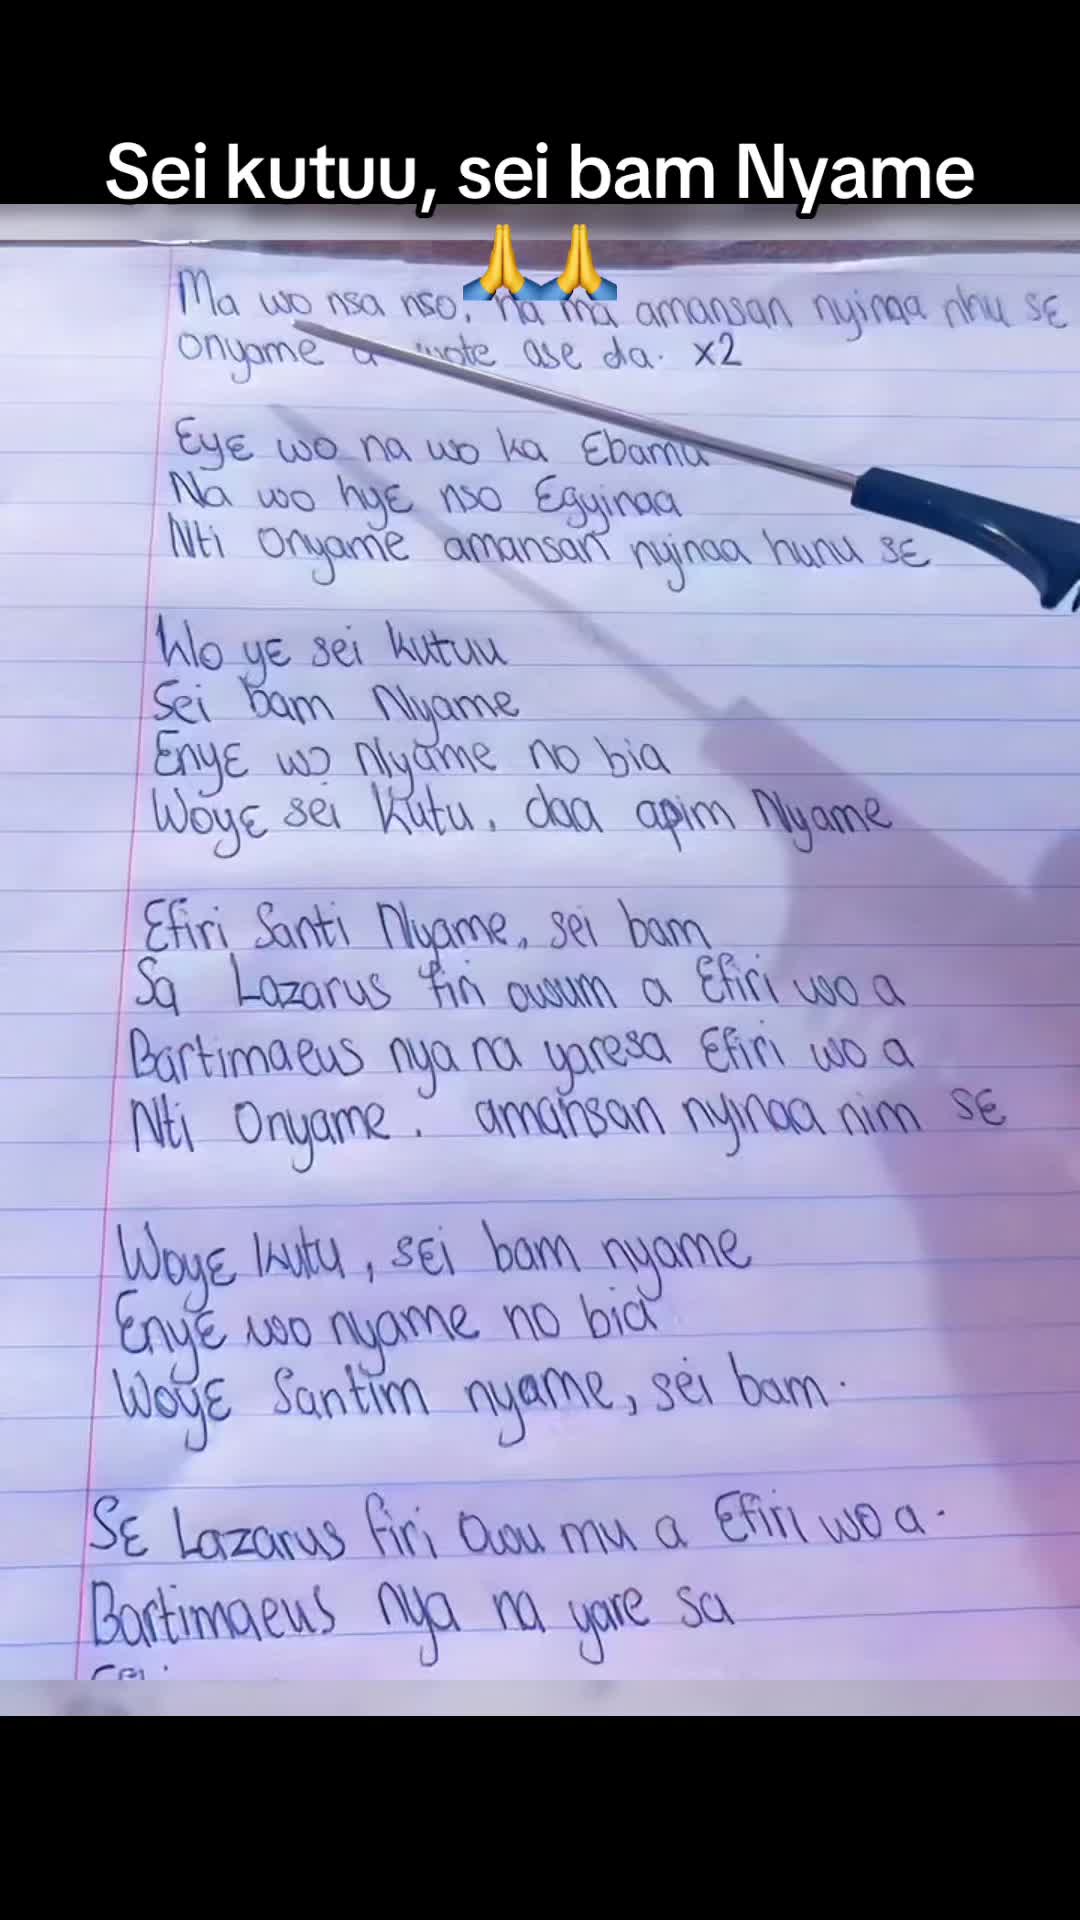 Sei kutuu, sei bam Nyame
🙏🙏
Ma wo nsa nso, na ma amansan nyinaa nhu sɛ
Onyame a wote ase da. x2
Eyɛ wo na wo ka Ebamu
Na wo hyɛ nso Egyinaa
Nti Onyame amansan nyinaa hunu sɛ
Wo yɛ sei kutuu
Sei bam Nyame
Enyɛ wɔ Nyame no bia
Woyɛ sei Kutu, daa apim Nyame
Efiri Santi Nyame, sei bam
Sɑ Lazarus firi owum a Efiri wo a
Bartimaeus nya na yaresa Efiri wo a
Nti Onyame. amansan nyinaa nim sɛ
Woyɛ kutu, sɛi bam nyame
Enyɛ woo nyame no bia
Woyɛ Santim nyame, sei bam.
Sɛ Lazarus firi Owu mu a Efiri wo a.
Bartimaeus nya na yare sa